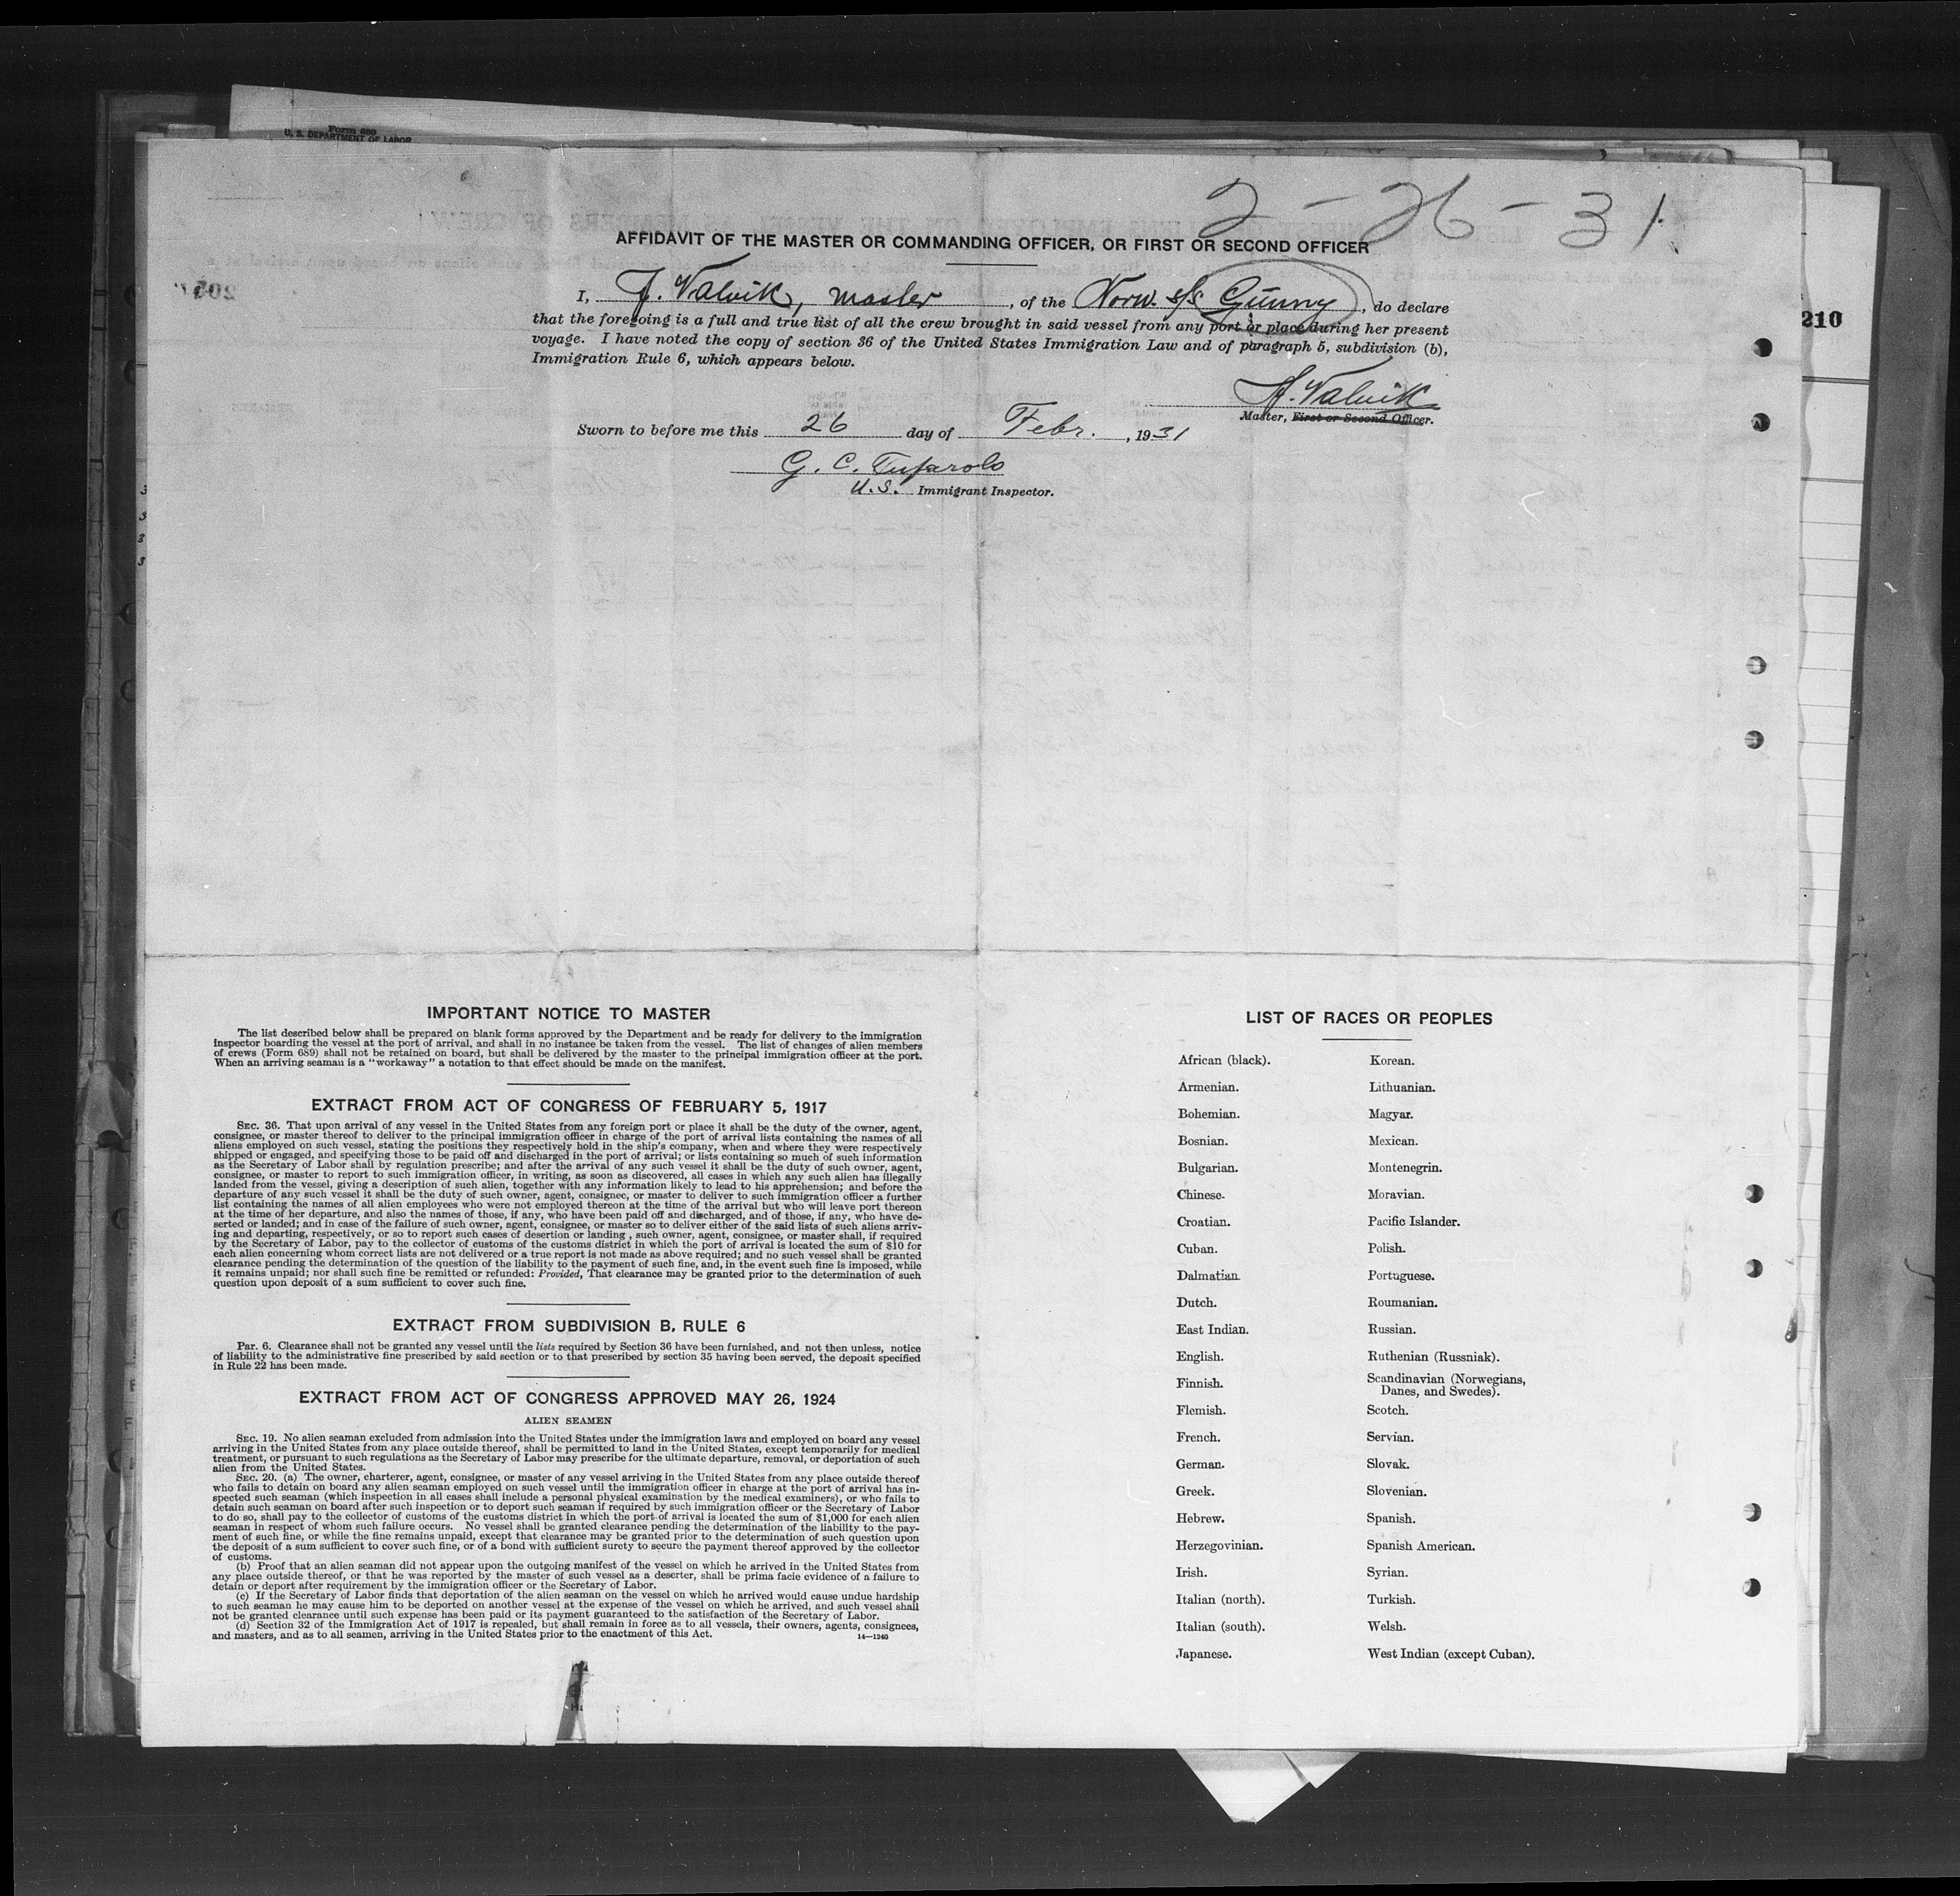 Form 689
U. S. DEPARTMENT OF LABOR
2 - 26 - 31
AFFIDAVIT OF THE MASTER OR COMMANDING OFFICER, OR FIRST OR SECOND OFFICER
I, J. Valvik, master, of the Norw. s/s Gunny, do declare
that the foregoing is a full and true list of all the crew brought in said vessel from any port or place during her present
voyage. I have noted the copy of section 36 of the United States Immigration Law and of paragraph 5, subdivision (b),
Immigration Rule 6, which appears below.
210
J. Valvik
Master, First or Second Officer.
Sworn to before me this 26 day of Febr., 1931
G. C.
U.S. Immigrant Inspector.
IMPORTANT NOTICE TO MASTER
The list described below shall be prepared on blank forms approved by the Department and be ready for delivery to the immigration
inspector boarding the vessel at the port of arrival, and shall in no instance be taken from the vessel. The list of changes of alien members
of crews (Form 689) shall not be retained on board, but shall be delivered by the master to the principal immigration officer at the port.
When an arriving seaman is a "workaway" a notation to that effect should be made on the manifest.
EXTRACT FROM ACT OF CONGRESS OF FEBRUARY 5, 1917
SEC. 36. That upon arrival of any vessel in the United States from any foreign port or place it shall be the duty of the owner, agent,
consignee, or master thereof to deliver to the principal immigration officer in charge of the port of arrival lists containing the names of all
aliens employed on such vessel, stating the positions they respectively hold in the ship's company, when and where they were respectively
shipped or engaged, and specifying those to be paid off and discharged in the port of arrival; or lists containing so much of such information
as the Secretary of Labor shall by regulation prescribe; and after the arrival of any such vessel it shall be the duty of such owner, agent,
consignee, or master to report to such immigration officer, in writing, as soon as discovered, all cases in which any such alien has illegally
landed from the vessel, giving a description of such alien, together with any information likely to lead to his apprehension; and before the
departure of any such vessel it shall be the duty of such owner, agent, consignee, or master to deliver to such immigration officer a further
list containing the names of all alien employees who were not employed thereon at the time of the arrival but who will leave port thereon
at the time of her departure, and also the names of those, if any, who have been paid off and discharged, and of those, if any, who have de-
serted or landed; and in case of the failure of such owner, agent, consignee, or master so to deliver either of the said lists of such aliens arriv-
ing and departing, respectively, or so to report such cases of desertion or landing , such owner, agent, consignee, or master shall, if required
by the Secretary of Labor, pay to the collector of customs of the customs district in which the port of arrival is located the sum of $10 for
each alien concerning whom correct lists are not delivered or a true report is not made as above required; and no such vessel shall be granted
clearance pending the determination of the question of the liability to the payment of such fine, and, in the event such fine is imposed, while
it remains unpaid; nor shall such fine be remitted or refunded: Provided, That clearance may be granted prior to the determination of such
question upon deposit of a sum sufficient to cover such fine.
EXTRACT FROM SUBDIVISION B, RULE 6
Par. 6. Clearance shall not be granted any vessel until the lists required by Section 36 have been furnished, and not then unless, notice
of liability to the administrative fine prescribed by said section or to that prescribed by section 35 having been served, the deposit specified
in Rule 22 has been made.
EXTRACT FROM ACT OF CONGRESS APPROVED MAY 26, 1924
ALIEN SEAMEN
SEC. 19. No alien seaman excluded from admission into the United States under the immigration laws and employed on board any vessel
arriving in the United States from any place outside thereof, shall be permitted to land in the United States, except temporarily for medical
treatment, or pursuant to such regulations as the Secretary of Labor may prescribe for the ultimate departure, removal, or deportation of such
alien from the United States.
SEC. 20. (a) The owner, charterer, agent, consignee, or master of any vessel arriving in the United States from any place outside thereof
who fails to detain on board any alien seaman employed on such vessel until the immigration officer in charge at the port of arrival has in-
spected such seaman (which inspection in all cases shall include a personal physical examination by the medical examiners), or who fails to
detain such seaman on board after such inspection or to deport such seaman if required by such immigration officer or the Secretary of Labor
to do so, shall pay to the collector of customs of the customs district in which the port of arrival is located the sum of $1,000 for each alien
seaman in respect of whom such failure occurs. No vessel shall be granted clearance pending the determination of the liability to the pay-
ment of such fine, or while the fine remains unpaid, except that clearance may be granted prior to the determination of such question upon
the deposit of a sum sufficient to cover such fine, or of a bond with sufficient surety to secure the payment thereof approved by the collector
of customs.
(b) Proof that an alien seaman did not appear upon the outgoing manifest of the vessel on which he arrived in the United States from
any place outside thereof, or that he was reported by the master of such vessel as a deserter, shall be prima facie evidence of a failure to
detain or deport after requirement by the immigration officer or the Secretary of Labor.
(c) If the Secretary of Labor finds that deportation of the alien seaman on the vessel on which he arrived would cause undue hardship
to such seaman he may cause him to be deported on another vessel at the expense of the vessel on which he arrived, and such vessel shall
not be granted clearance until such expense has been paid or its payment guaranteed to the satisfaction of the Secretary of Labor.
(d) Section 32 of the Immigration Act of 1917 is repealed, but shall remain in force as to all vessels, their owners, agents, consignees,
and masters, and as to all seamen, arriving in the United States prior to the enactment of this Act.
14—1240
LIST OF RACES OR PEOPLES
African (black).
Armenian.
Bohemian.
Bosnian.
Bulgarian.
Chinese.
Croatian.
Cuban.
Dalmatian.
Dutch.
East Indian.
English.
Finnish.
Flemish.
French.
German.
Greek.
Hebrew.
Herzegovinian.
Irish.
Italian (north).
Italian (south).
Japanese.
Korean.
Lithuanian.
Magyar.
Mexican.
Montenegrin.
Moravian.
Pacific Islander.
Polish.
Portuguese.
Roumanian.
Russian.
Ruthenian (Russniak).
Scandinavian (Norwegians,
Danes, and Swedes).
Scotch.
Servian.
Slovak.
Slovenian.
Spanish.
Spanish American.
Syrian.
Turkish.
Welsh.
West Indian (except Cuban).